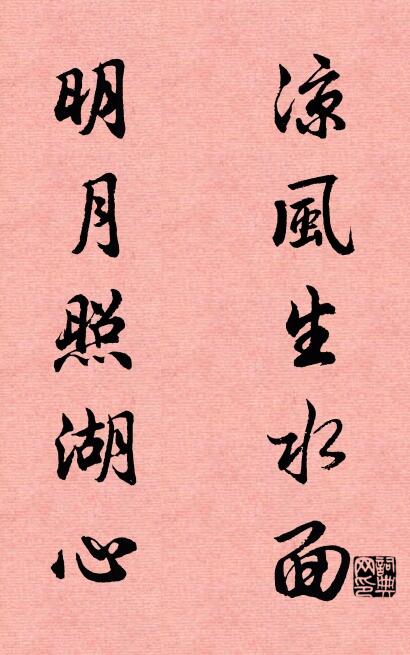 涼風生水面
明月照湖心
詞典
网印